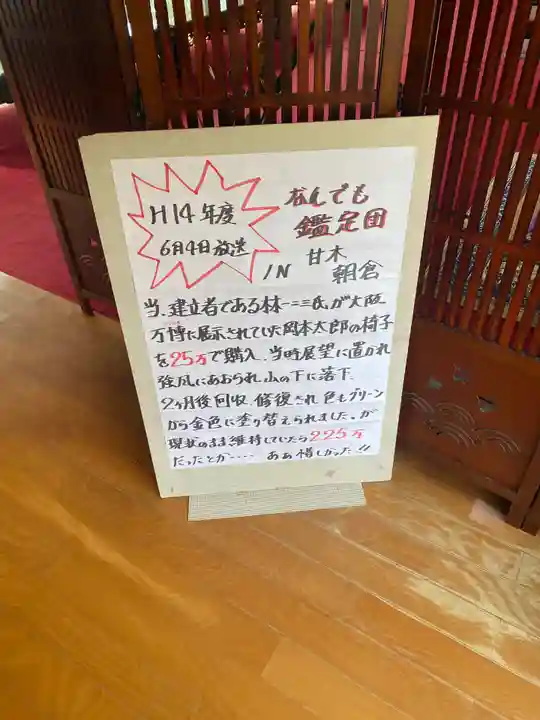 H14年度
6月4日放送
なんでも
鑑定団
IN 甘木
朝倉
当、建立者である林一二三氏が大阪
万博に展示されていた岡本太郎の椅子
を25万で購入、当時展望に置かれ
強風にあおられ、山の下に落下、
2ヶ月後回収、修復され色もグリーン
から金色に塗り替えられました。が
現状のまま維持していたら225万
だったとか‥‥ あぁ惜しかった!!